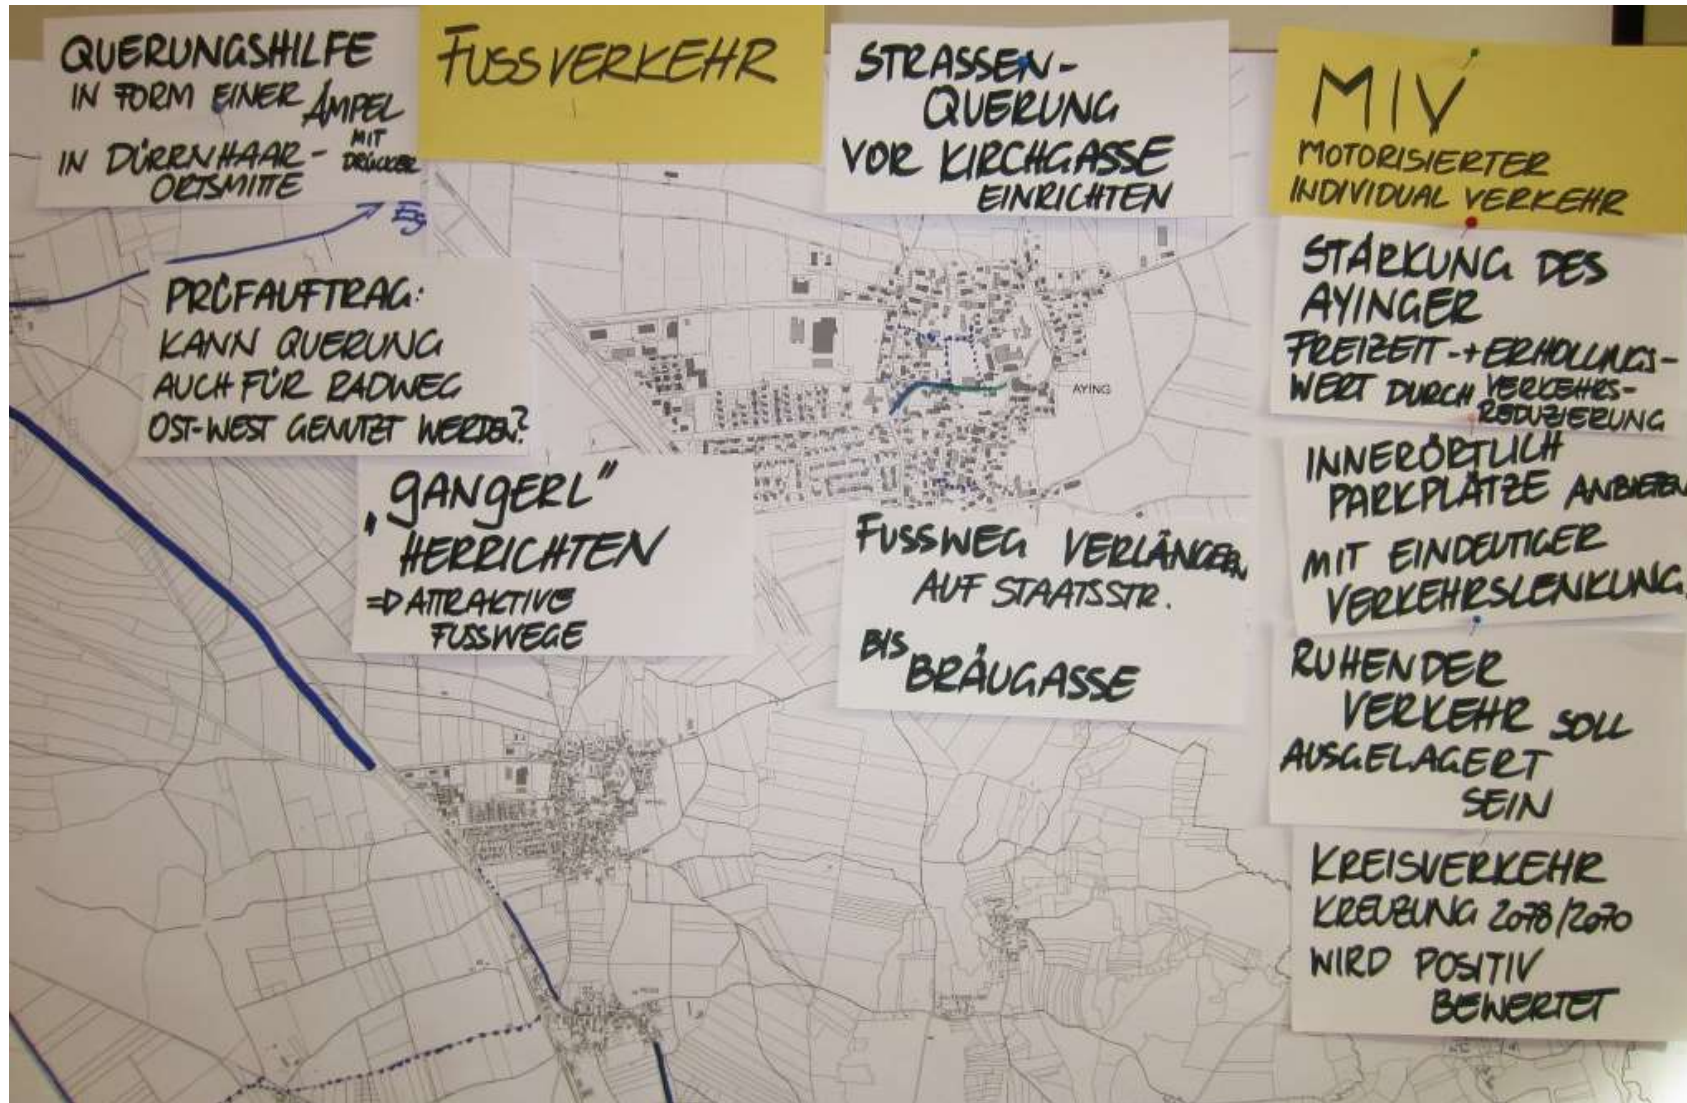 QUERUNGSHILFE
IN FORM EINER AMPEL
MIT
DRÜCKER
IN DÜRRNHAAR -
ORTSMITTE
FUSSVERKEHR
STRASSEN-
QUERUNG
VOR KIRCHGASSE
EINRICHTEN
MIV
MOTORISIERTER
INDIVIDUAL VERKEHR
PRÜFAUFTRAG:
KANN QUERUNG
AUCH FÜR RADWEG
OST-WEST GENUTZT WERDEN?
„GANGERL"
HERRICHTEN
=> ATTRAKTIVE
FUSSWEGE
AYING
FUSSWEG VERLÄNGERN
AUF STAATSSTR.
BIS
BRÄUGASSE
STÄRKUNG DES
AYINGER
FREIZEIT-+ERHOLUNGS-
WERT DURCH VERKEHRS-
REDUZIERUNG
INNERÖRTLICH
PARKPLÄTZE ANBIETEN
MIT EINDEUTIGER
VERKEHRSLENKUNG
RUHENDER
VERKEHR SOLL
AUSGELAGERT
SEIN
KREISVERKEHR
KREUZUNG 2078/2070
WIRD POSITIV
BEWERTET